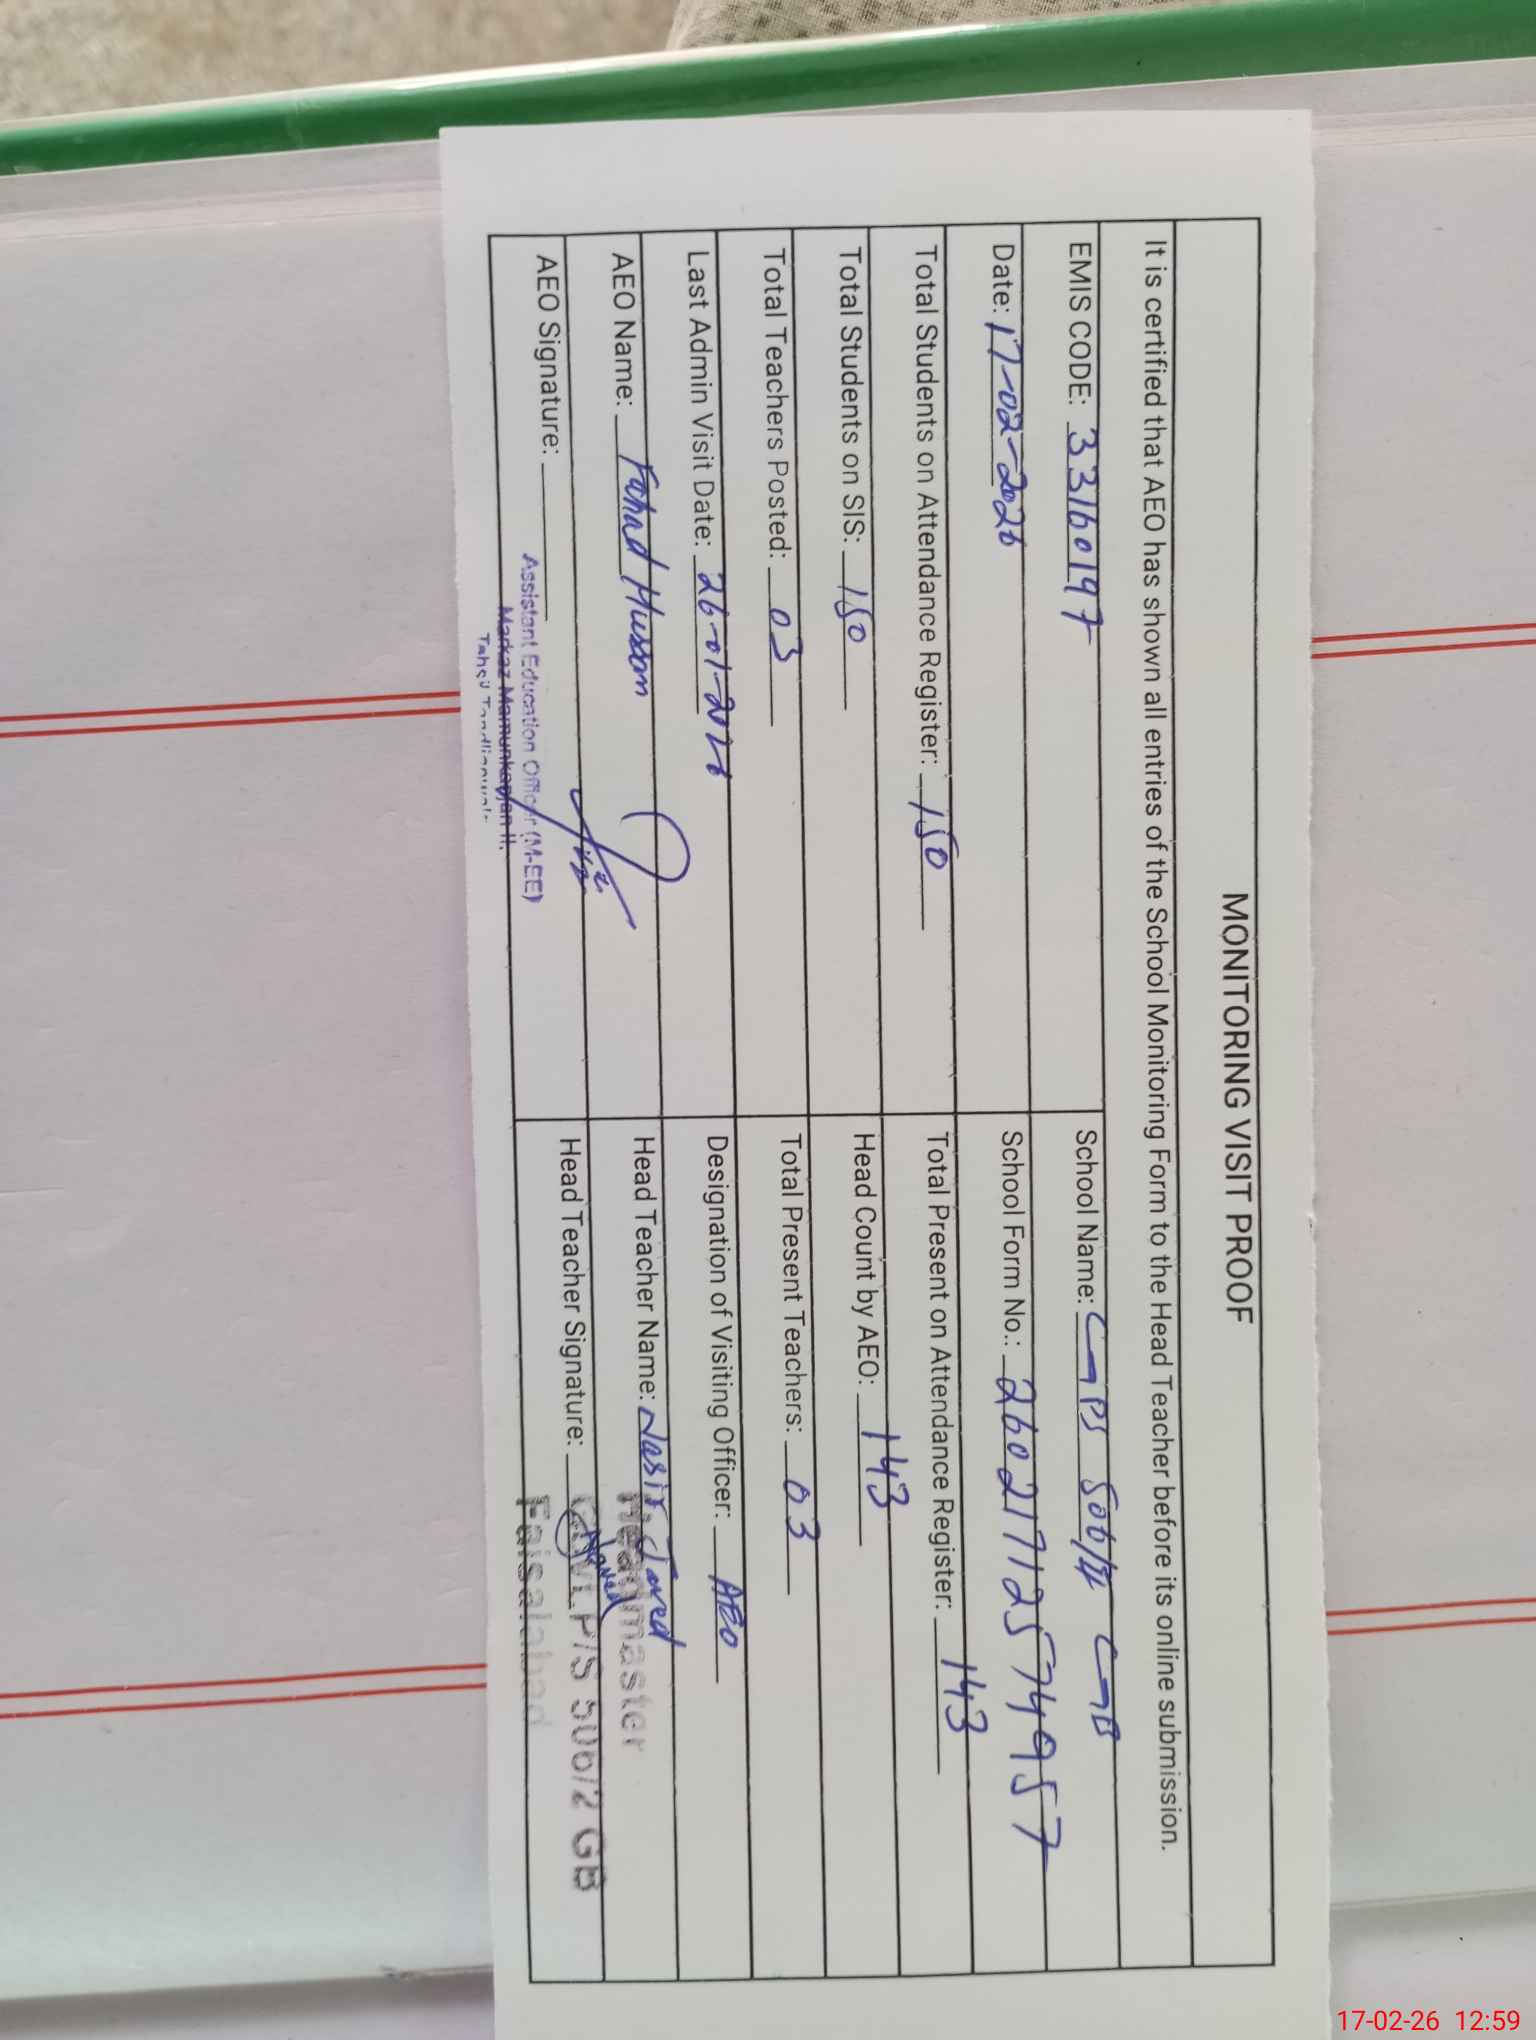 MONITORING VISIT PROOF
It is certified that AEO has shown all entries of the School Monitoring Form to the Head Teacher before its online submission.
EMIS CODE: 33160197
School Name: GPS 506/2 GB
Date: 17-02-2026
School Form No.: 260217125574957
Total Students on Attendance Register: 150
Total Present on Attendance Register: 143
Total Students on SIS: 150
Head Count by AEO: 143
Total Teachers Posted: 03
Total Present Teachers: 03
Last Admin Visit Date: 26-01-2026
Designation of Visiting Officer: AEO
AEO Name: Fahad Hussain
Head Teacher Name: Nasir Javed
Headmaster
AEO Signature:
Assistant Education Officer (M-EE)
Markaz Mamunkanjan II.
Head Teacher Signature:
Govt. P/S 506/2 GB
Faisalabad
17-02-26 12:59